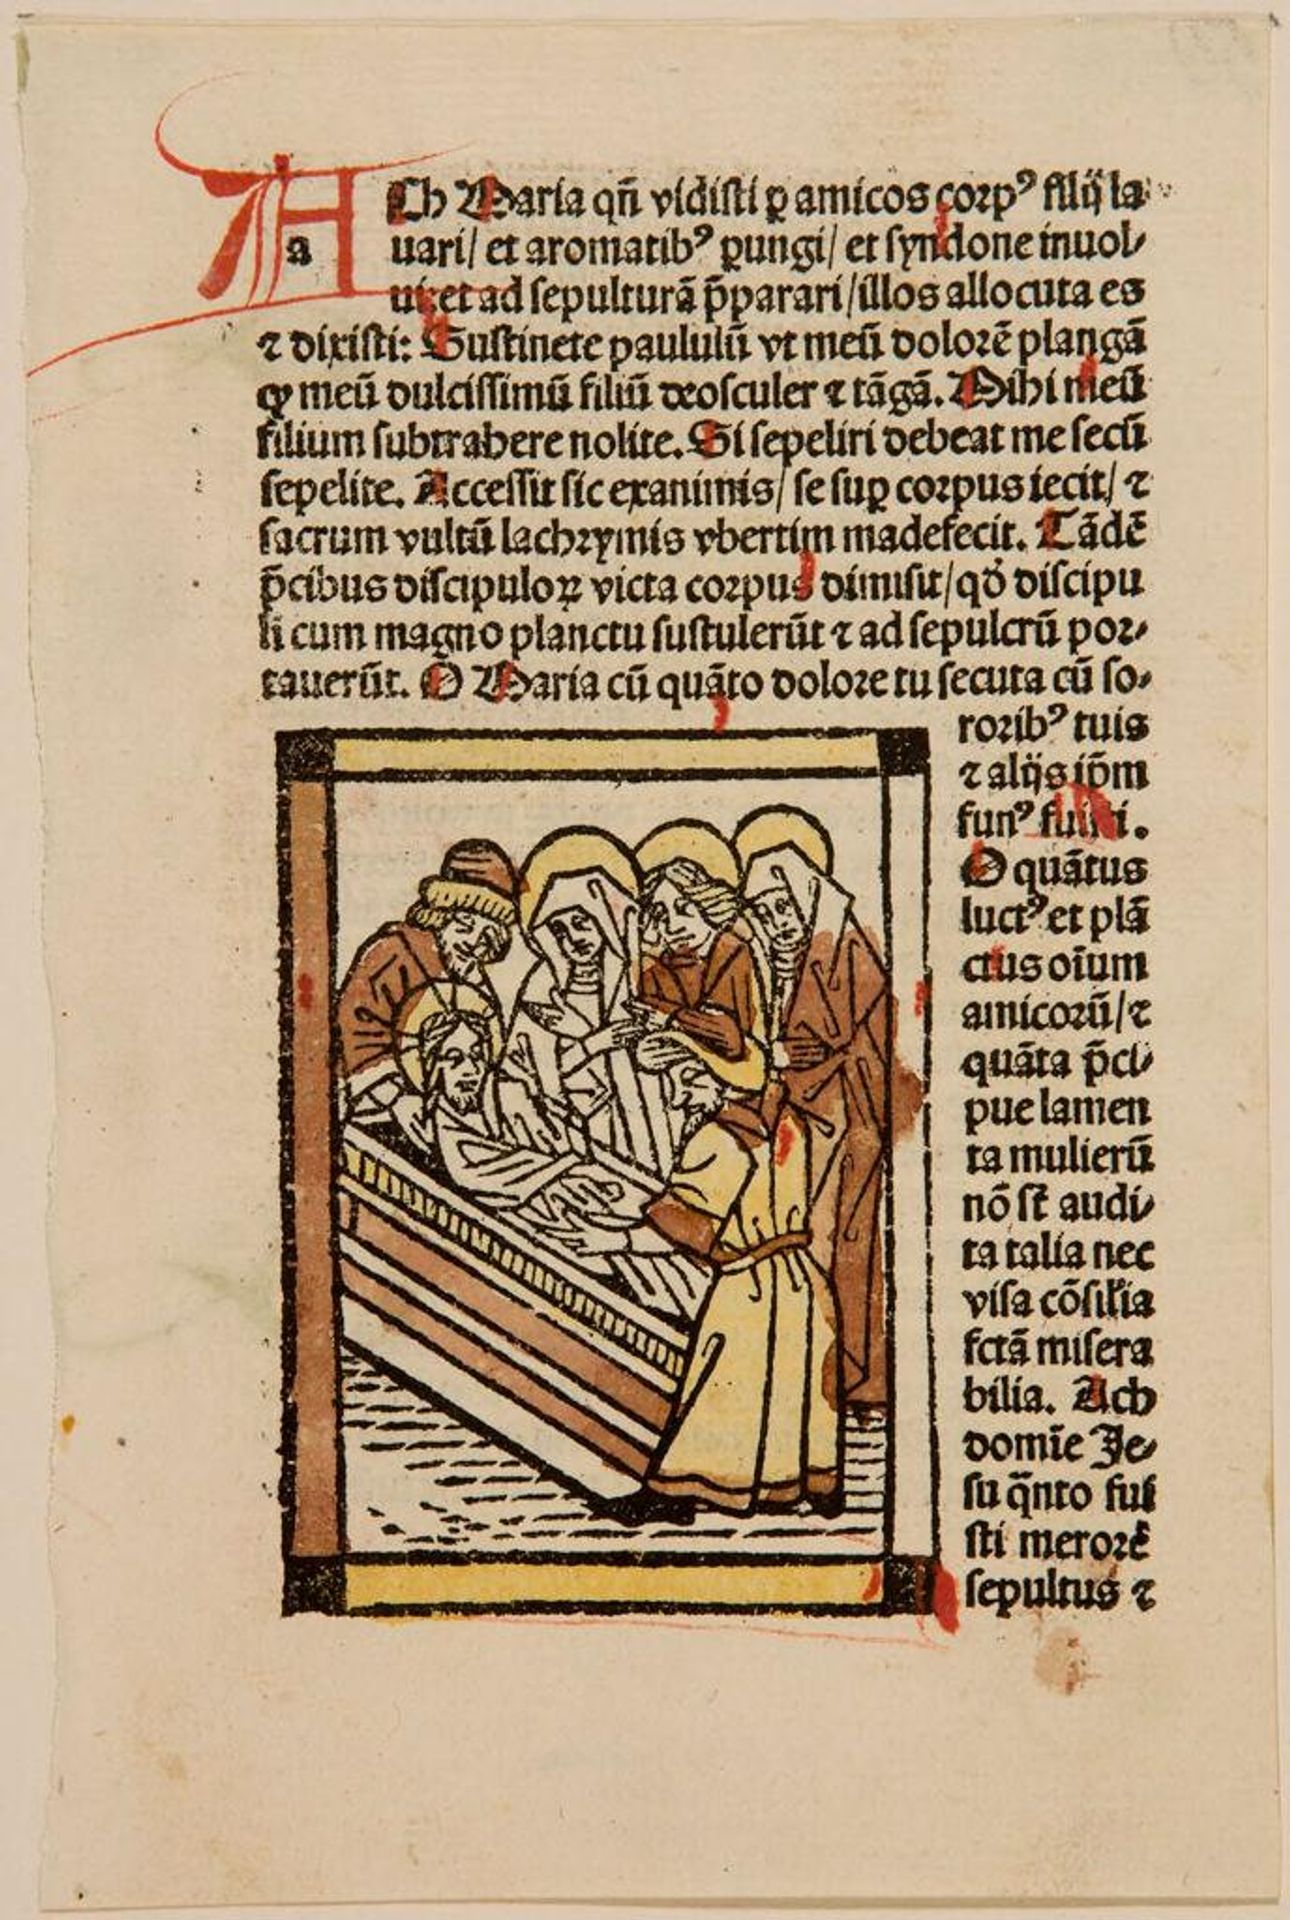 ACh Maria qñ vidisti ꝑ amicos corpꝰ filij la
uari/ et aromatibꝰ ꝑungi/ et syndone inuol⸗
ui: et ad sepulturā p̄parari/ illos allocuta es
⁊ dixisti: Sustinete paululū vt meū dolorē plangā
ꝙ meū dulcissimū filiū deosculer ⁊ tāgā. Mihi meū
filium subtrahere nolite. Si sepeliri debeat me secū
sepelite. Accessit sic exanimis/ se suꝑ corpus iecit/ ⁊
sacrum vultū lachrymis vbertim madefecit. Tādē
p̄cibus discipuloꝝ victa corpus dimisit/ qd̓ discipu
li cum magno planctu sustulerūt ⁊ ad sepulcrū por⸗
tauerūt. O Maria cū quāto dolore tu secuta cū so⸗
roribꝰ tuis
⁊ alijs ip̄m
funꝰ fuisti.
O quātus
luctꝰ et plā
ctus oīum
amicorū/ ⁊
quāta p̄ci⸗
pue lamen
ta mulierū
nō st̄ audi⸗
ta talia nec
visa cōsilia
fctā misera
bilia. Ach
domīe Je⸗
su q̄nto fui
sti merorē
sepultus ⁊